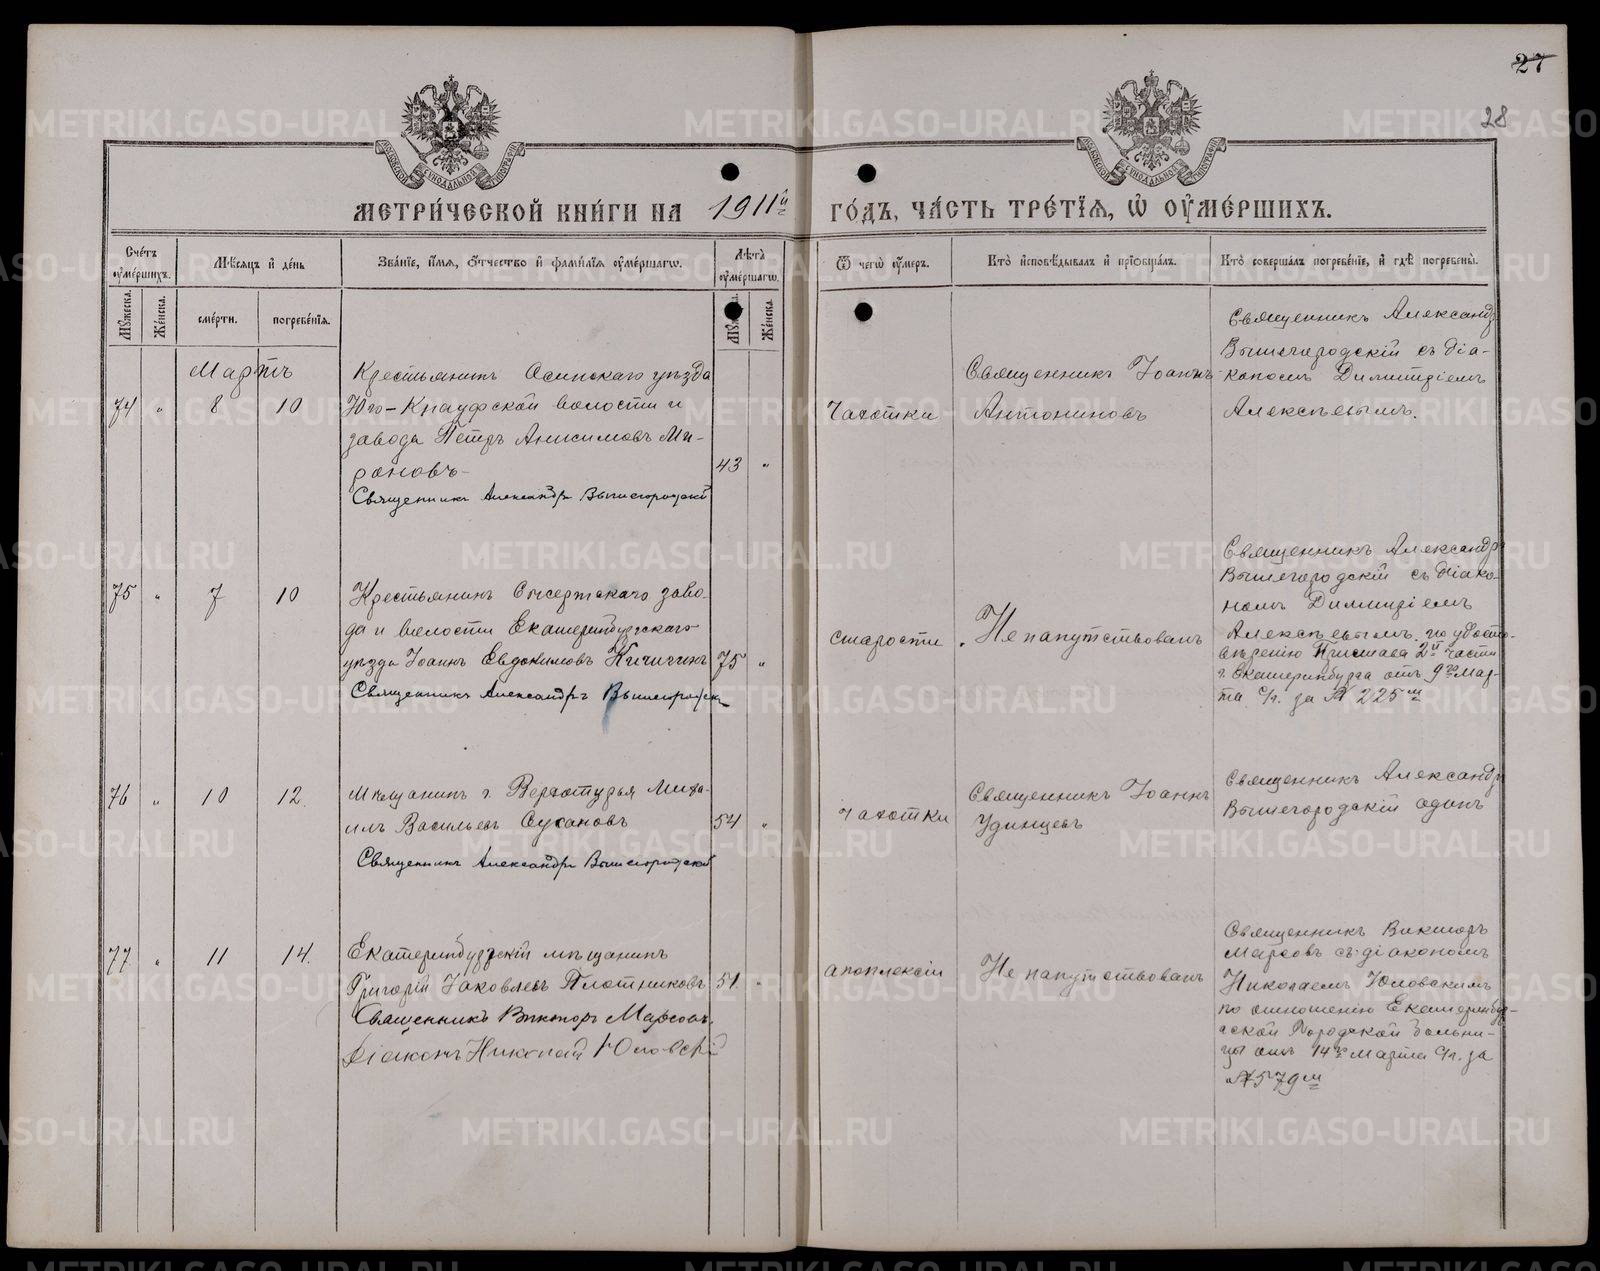 27
28
МЕТРИ́ЧЕСКОЙ КНИ́ГИ НА 1911й ГО́ДЪ, ЧА́СТЬ ТРЕ́ТІѦ, Ѡ ОУ҆МЕ́РШИХЪ.
Сче́тъ оу҆ме́ршихъ.
Мѣ́сѧцъ и҆ де́нь
Зва́нїе, и҆́мѧ, ѻ҆́тчество и҆ фами́лїѧ оу҆ме́ршагѡ.
Лѣ́тъ оу҆ме́ршагѡ.
Ѿ чегѡ̀ оу҆́меръ.
Кто̀ и҆сповѣ́дывалъ и҆ прїѡбща́лъ.
Кто̀ соверша́лъ погребе́нїе, и҆ гдѣ̀ погребены̀.
Мꙋ́жеска.
Же́нска.
сме́рти.
погребе́нїѧ.
Мꙋ́жеска.
Же́нска.
Мартъ
74 " 8 10
Крестьянинъ Осинскаго уѣзда
Юго-Кнауфской волости и
завода Петръ Анисимовъ Ми-
роновъ
43 "
Священникъ Александръ Вышегородскій
Чахотки
Священникъ Іоаннъ
Антониновъ
Священникъ Александръ
Вышегородскій съ діа-
кономъ Димитріемъ
Алексѣевымъ.
75 " 7 10
Крестьянинъ Сысертскаго заво-
да и волости Екатеринбургскаго
уѣзда Іоаннъ Евдокимовъ Кичигинъ
75 "
Священникъ Александръ Вышегородскій
старости
Не напутствованъ
Священникъ Александръ
Вышегородскій съ діако-
номъ Димитріемъ
Алексѣевымъ, по удосто-
вѣренію Пристава 2й части
г. Екатеринбурга отъ 9го Мар-
та с/г. за № 225м
76 " 10 12.
Мѣщанинъ г. Верхотурья Миха-
илъ Васильевъ Сухановъ
54 "
Священникъ Александръ Вышегородскій
чахотки
Священникъ Іоаннъ
Удинцевъ
Священникъ Александръ
Вышегородскій одинъ
77 " 11 14.
Екатеринбургскій мѣщанинъ
Григорій Іаковлевъ Плотниковъ
51 "
Священникъ Викторъ Марсовъ.
Діаконъ Николай Юловскій
апоплексіи
Не напутствованъ
Священникъ Викторъ
Марсовъ съ діакономъ
Николаемъ Юловскимъ
по отношенію Екатеринбур-
гской Городской больни-
цы отъ 14го Марта с/г. за
№579м